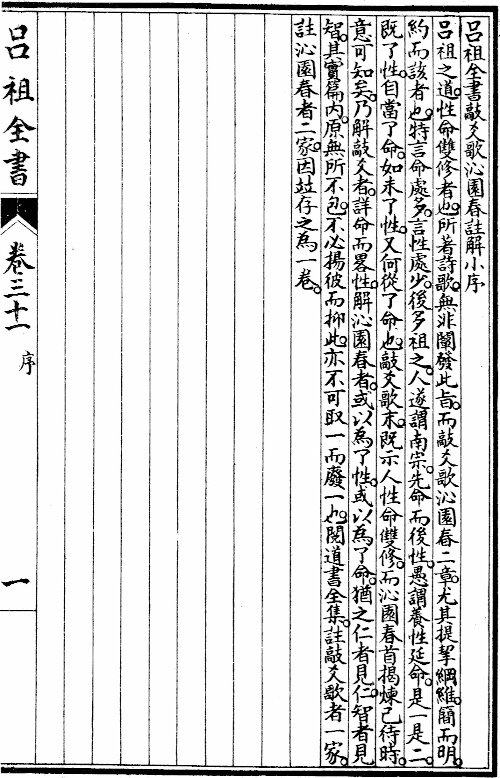 呂祖全書敲爻歌沁園春註解小序
呂祖之道。性命雙修者也。所著詩歌。無非闡發此旨。而敲爻歌沁園春二章。尤其提挈綱維。簡而明。
約而該者也。特言命處多。言性處少。後多祖之。人遂謂南宗。先命而後性。愚謂養性延命。是一是二。
既了性。自當了命。如未了性。又何從了命也。敲爻歌末。既示人性命雙修。而沁園春首揭煉己待時。
意可知矣。乃解敲爻者。詳命而畧性。解沁園春者。或以為了性。或以為了命。猶之仁者見仁。智者見
智。其實篇內。原無所不包。不必揚彼而抑此。亦不可取一而廢一也。閱道書全集。註敲爻歌者一家。
註沁園春者二家。因竝存之為一卷。
呂祖全書
卷三十一
序
一